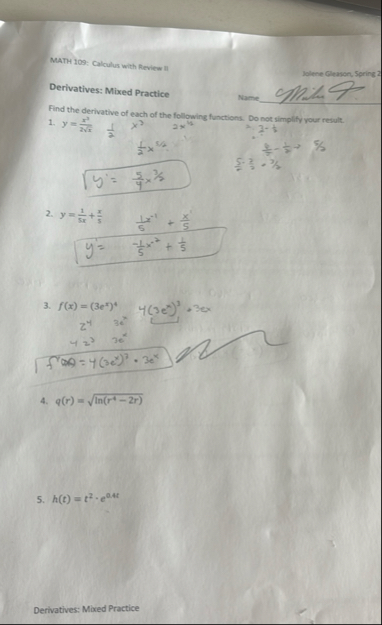 MATH 109: Calculus with Review II
Jolene Gleason, Spring 2
Derivatives: Mixed Practice
Name
Find the derivative of each of the following functions. Do not simplify your result.
1. y = x³/(2√x) 1/2 x³ 2x^(1/2)
1/2 x^(5/2)
y' = 5/4 x^(3/2)
2. y = 1/(5x) + x/5 1/5 x⁻¹ + x/5
y' = -1/5 x⁻² + 1/5
3. f(x) = (3eˣ)⁴ 4(3eˣ)³ · 3ex
z⁴ 3eˣ
4z³ 3eˣ
f'(x) = 4(3eˣ)³ · 3eˣ
4. q(r) = √(ln(r⁴ − 2r))
5. h(t) = t² · e^(0.4t)
Derivatives: Mixed Practice